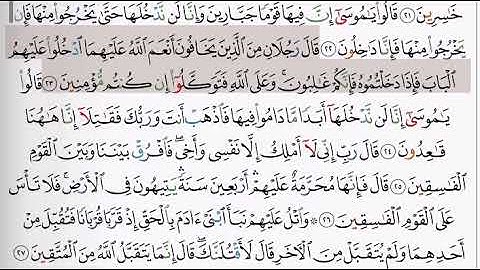 خَٰسِرِينَ ٢١ قَالُوا۟ يَٰمُوسَىٰٓ إِنَّ فِيهَا قَوْمًا جَبَّارِينَ وَإِنَّا لَن نَّدْخُلَهَا حَتَّىٰ يَخْرُجُوا۟ مِنْهَا فَإِن
يَخْرُجُوا۟ مِنْهَا فَإِنَّا دَٰخِلُونَ ٢٢ قَالَ رَجُلَانِ مِنَ ٱلَّذِينَ يَخَافُونَ أَنْعَمَ ٱللَّهُ عَلَيْهِمَا ٱدْخُلُوا۟ عَلَيْهِمُ
ٱلْبَابَ فَإِذَا دَخَلْتُمُوهُ فَإِنَّكُمْ غَٰلِبُونَ ۚ وَعَلَى ٱللَّهِ فَتَوَكَّلُوٓا۟ إِن كُنتُم مُّؤْمِنِينَ ٢٣ قَالُوا۟
يَٰمُوسَىٰٓ إِنَّا لَن نَّدْخُلَهَآ أَبَدًا مَّا دَامُوا۟ فِيهَا ۖ فَٱذْهَبْ أَنتَ وَرَبُّكَ فَقَٰتِلَآ إِنَّا هَٰهُنَا
قَٰعِدُونَ ٢٤ قَالَ رَبِّ إِنِّى لَآ أَمْلِكُ إِلَّا نَفْسِى وَأَخِى ۖ فَٱفْرُقْ بَيْنَنَا وَبَيْنَ ٱلْقَوْمِ
ٱلْفَٰسِقِينَ ٢٥ قَالَ فَإِنَّهَا مُحَرَّمَةٌ عَلَيْهِمْ ۛ أَرْبَعِينَ سَنَةً ۛ يَتِيهُونَ فِى ٱلْأَرْضِ ۚ فَلَا تَأْسَ
عَلَى ٱلْقَوْمِ ٱلْفَٰسِقِينَ ٢٦ ۞ وَٱتْلُ عَلَيْهِمْ نَبَأَ ٱبْنَىْ ءَادَمَ بِٱلْحَقِّ إِذْ قَرَّبَا قُرْبَانًا فَتُقُبِّلَ مِنْ
أَحَدِهِمَا وَلَمْ يُتَقَبَّلْ مِنَ ٱلْءَاخَرِ قَالَ لَأَقْتُلَنَّكَ ۖ قَالَ إِنَّمَا يَتَقَبَّلُ ٱللَّهُ مِنَ ٱلْمُتَّقِينَ ٢٧